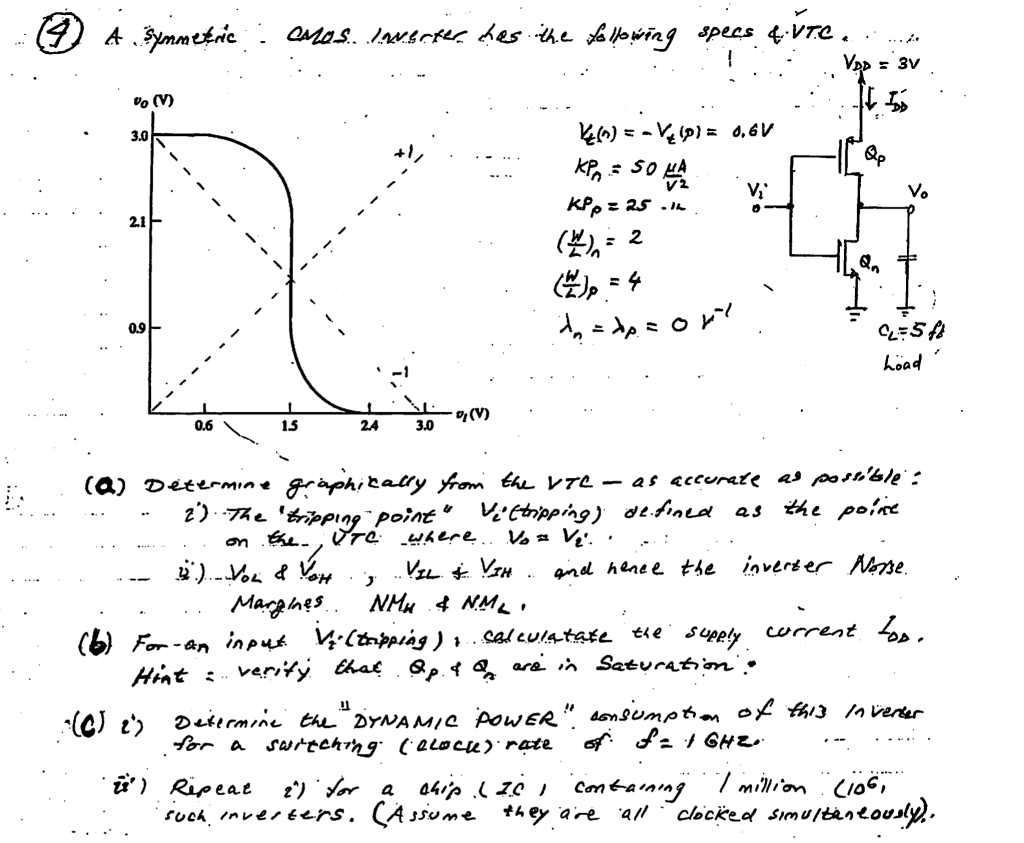 (4) A symmetric CMOS Inverter has the following specs & VTC.
VDD = 3V
IDD
vO (V)
3.0
2.1
0.9
+1
-1
0.6 1.5 2.4 3.0 vI (V)
Vt(n) = - Vt(p) = 0.6V
KPn = 50 μA/V2
KPp = 25 "
(W/L)n = 2
(W/L)p = 4
λn = λp = 0 V-1
Qp
Vi
Vo
Qn
CL=5 ff
Load
(a) Determine graphically from the VTC — as accurate as possible :
i) The "tripping point" Vi(tripping) defined as the point
on the VTC where Vo = Vi.
ii) VOL & VOH , VIL & VIH and hence the inverter Noise
Margines NMH & NML.
(b) For an input Vi(tripping), calculatate the supply current IDD.
Hint : verify that Qp & Qn are in Saturation.
(C) i) Determine the "DYNAMIC POWER" consumption of this Inverter
for a switching (clock) rate of f = 1 GHZ.
ii) Repeat i) for a chip (IC) containing 1 million (106)
such inverters. (Assume they are all clocked simultaneously).